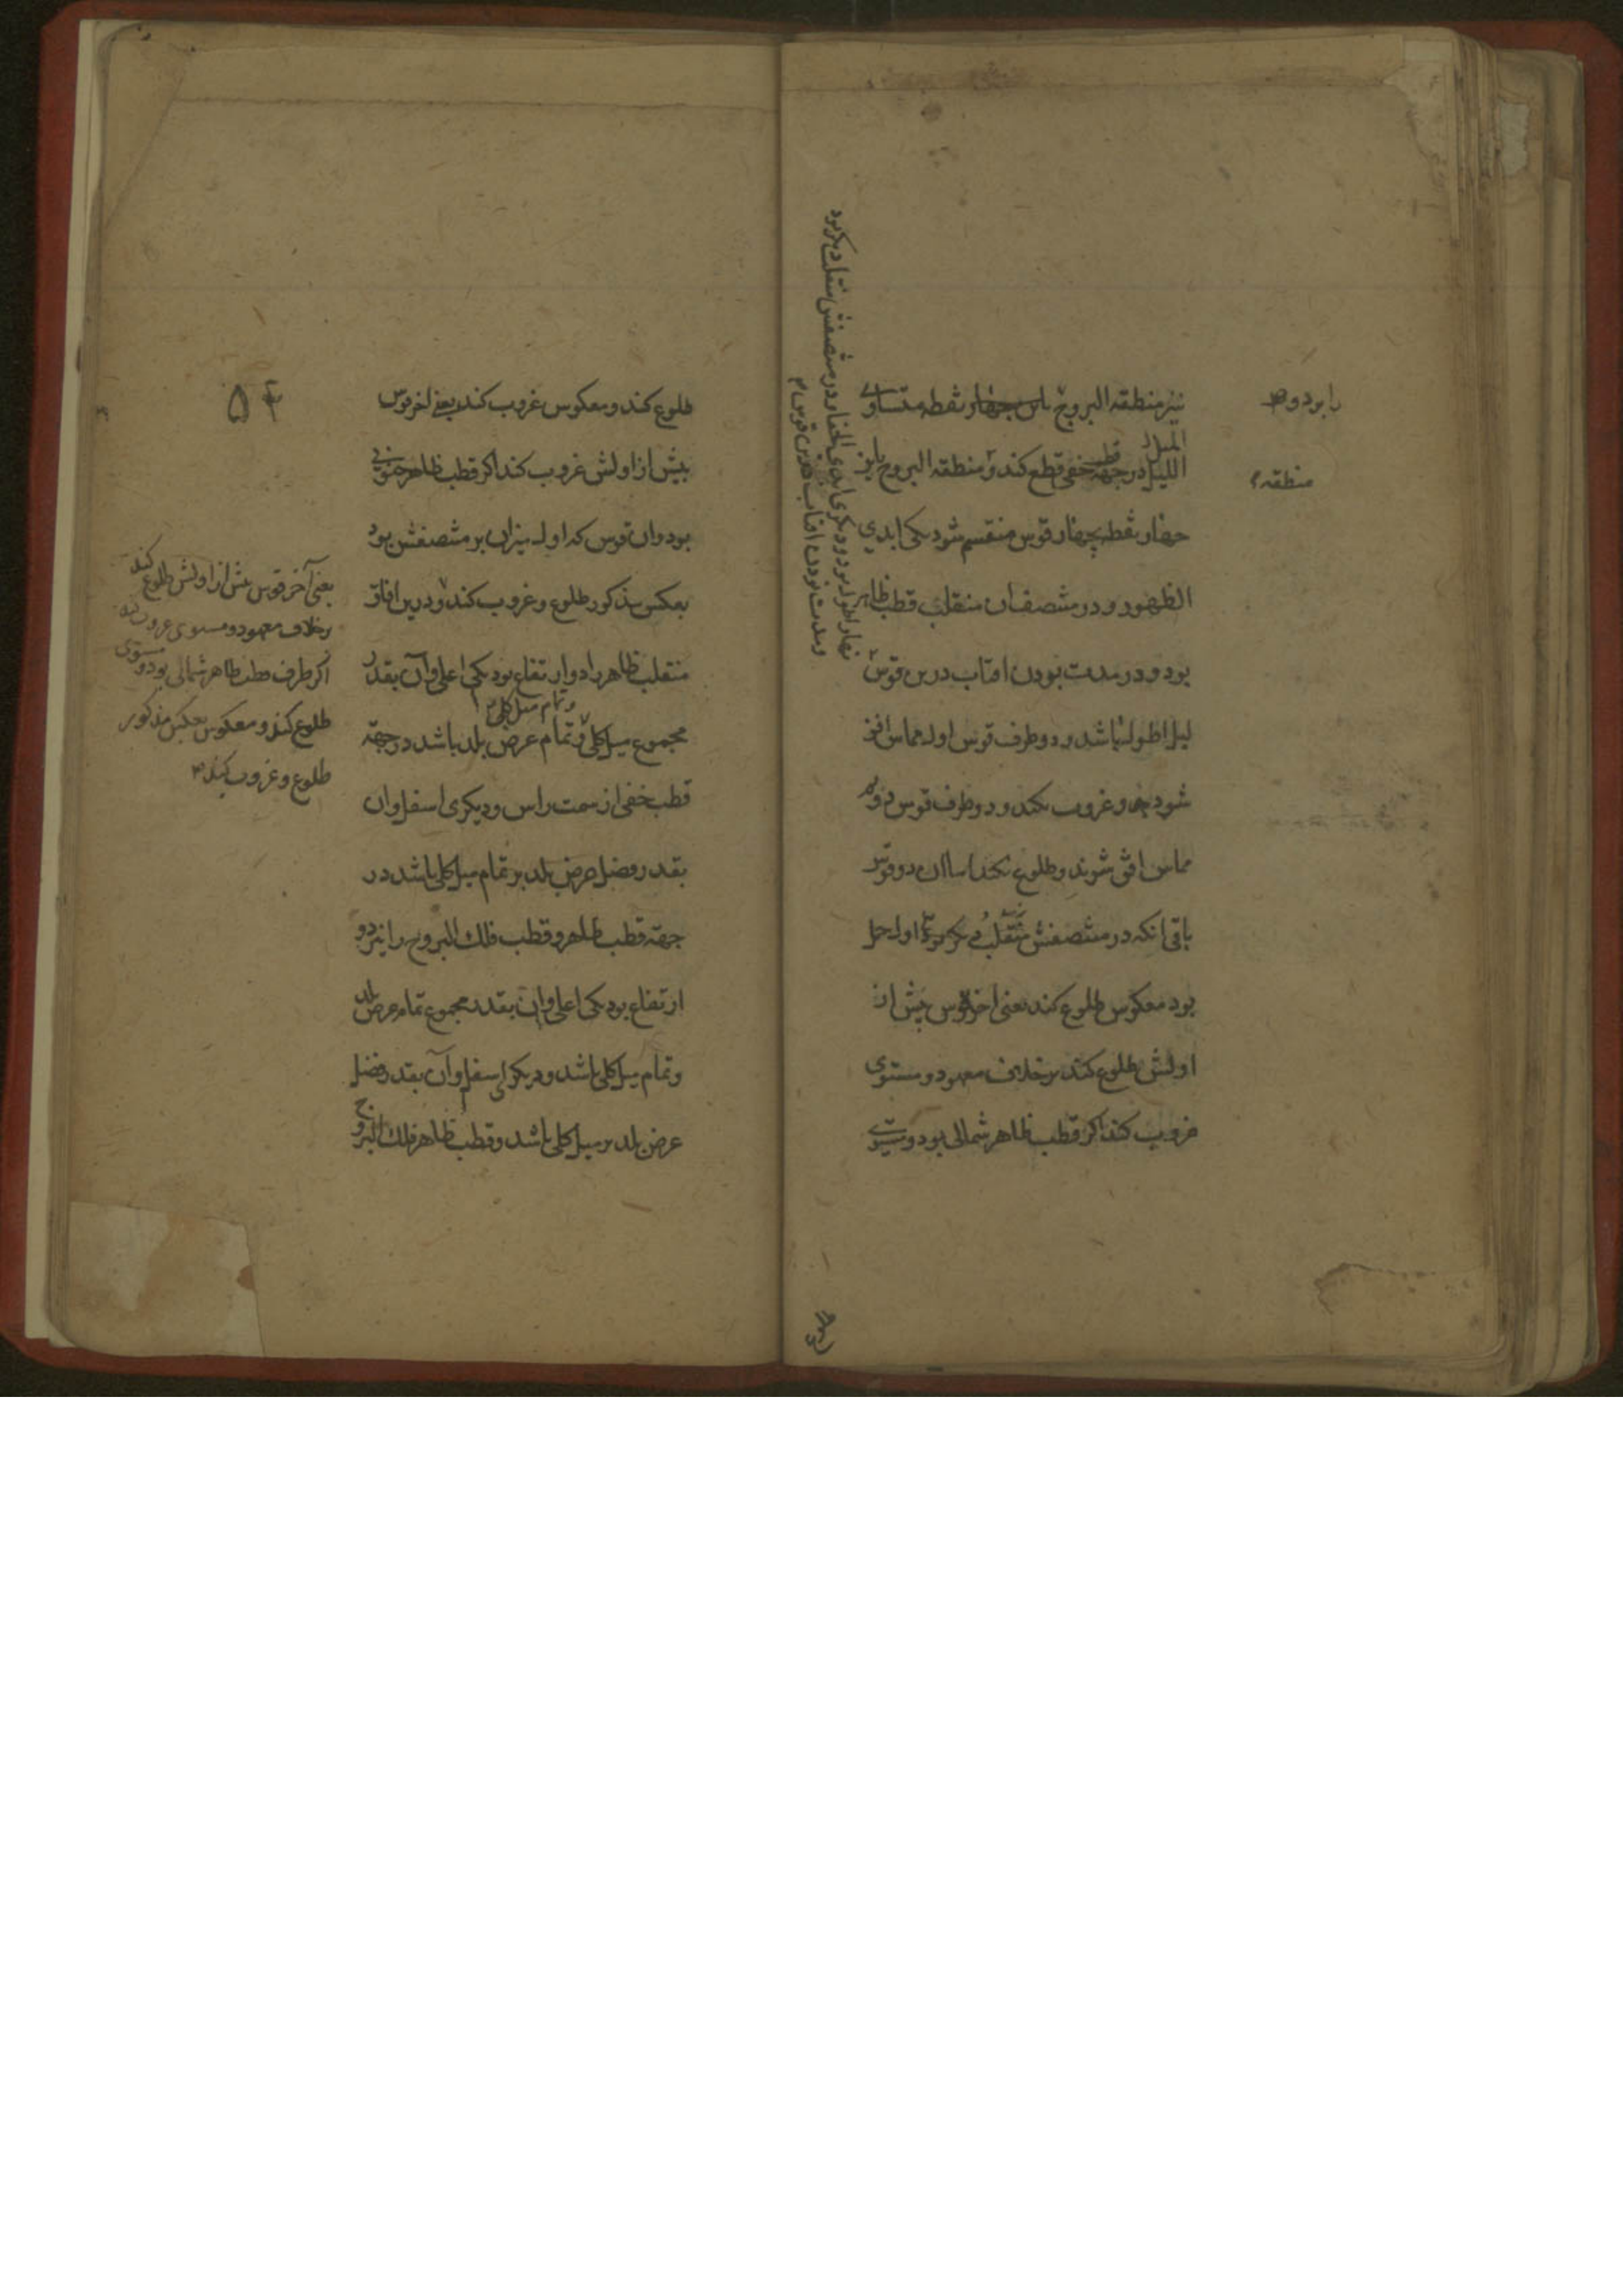 نیز منطقه البروج باین جهار نقطه متساوی
المیل در جهة قطب خفی قطع کند و منطقه البروج باین
جهار نقطه بچهار قوس منقسم شود یکی ابدی
الظهور و در منتصف ان منقلب قطب ظاهر
بود و در مدت بودن افتاب درین قوس
لیل اطول باشد و دو طرف قوس اول مماس افق
شود و غروب نکند و دو طرف قوس دوم
مماس افق شوند و طلوع نکند اما ان دو قوس
باقی انکه در منتصفش اول حمل
بود معکوس طلوع کند یعنی اخر قوس پیش از
اولش طلوع کند بر خلاف معهود و مستوی
غروب کند اکر قطب ظاهر شمالی بود و مستوی
را بود و
منطقه
نهار اطول بود و دیکری ابدی الخفا و در منتصفش منقلب دیکر بود
و مدت بودن افتاب درین قوس
طلوع کند و معکوس غروب کند یعنی اخر قوس
بیش از اولش غروب کند اکر قطب ظاهر جنوبی
بود و ان قوس که اول میزان بر منتصفش بود
بعکس مذکور طلوع و غروب کند و درین افاق
منقلب ظاهر را دو ارتفاع بود یکی اعلی و آن بقدر
مجموع میل کلی و تمام عرض بلد باشد در جهة
و تمام میل کلی
قطب خفی از سمت راس و دیکری اسفل و ان
بقدر فضل عرض بلد بر تمام میل کلی باشد در
جهة قطب ظاهر و قطب فلك البروج را نیز دو
ارتفاع بود یکی اعلی و ان بقدر مجموع تمام عرض بلد
و تمام میل کلی باشد و دیکری اسفل و آن بقدر فضل
عرض بلد بر میل کلی باشد و قطب ظاهر فلك البروج
یعنی آخر قوس پیش از اولش طلوع کند
بر خلاف معهود و مستوی غروب کند
اکر طرف قطب ظاهر شمالی بود و مستوی
طلوع کند و معکوس بعکس مذکور
طلوع و غروب کند